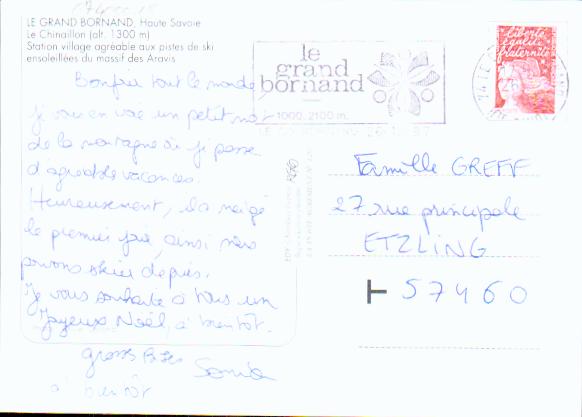 LE GRAND BORNAND, Haute Savoie
Le Chinaillon (alt. 1300 m)
Station village agréable aux pistes de ski
ensoleillées du massif des Aravis
Bonjour tout le monde,
je vous envoie un petit mot
de la montagne où je passe
d'agréable vacances
Heureusement, il a neigé
le premier jour, ainsi nous
pouvons skier depuis.
Je vous souhaite à tous un
Joyeux Noël, à bientôt.
gross Sonia
à bientôt
le
grand
bornand
1000. 2100 m.
Liberté
Égalité
Fraternité
Famille GREFF
27 rue principale
ETZLING
57460